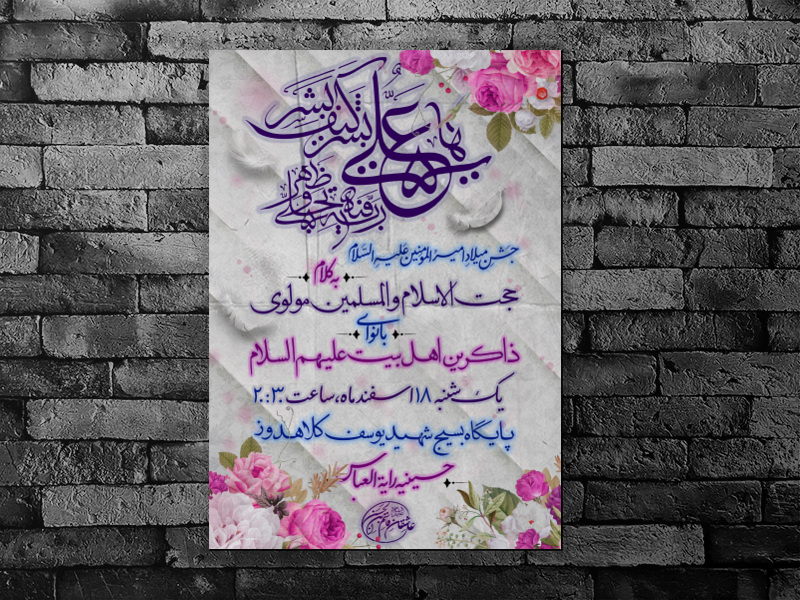 ها علی بشر کیف بشر
ربه فیه تجلی و ظهر
جشن میلاد امیرالمومنین علیه السلام
به کلام
حجت الاسلام والمسلمین مولوی
بانوای
ذاکرین اهل بیت علیهم السلام
یک شنبه ۱۱۸سفند ماه، ساعت ۲۰:۳۰
پایگاه بسیج شهید یوسف کلاهدوز
حسینیه رایة العباس